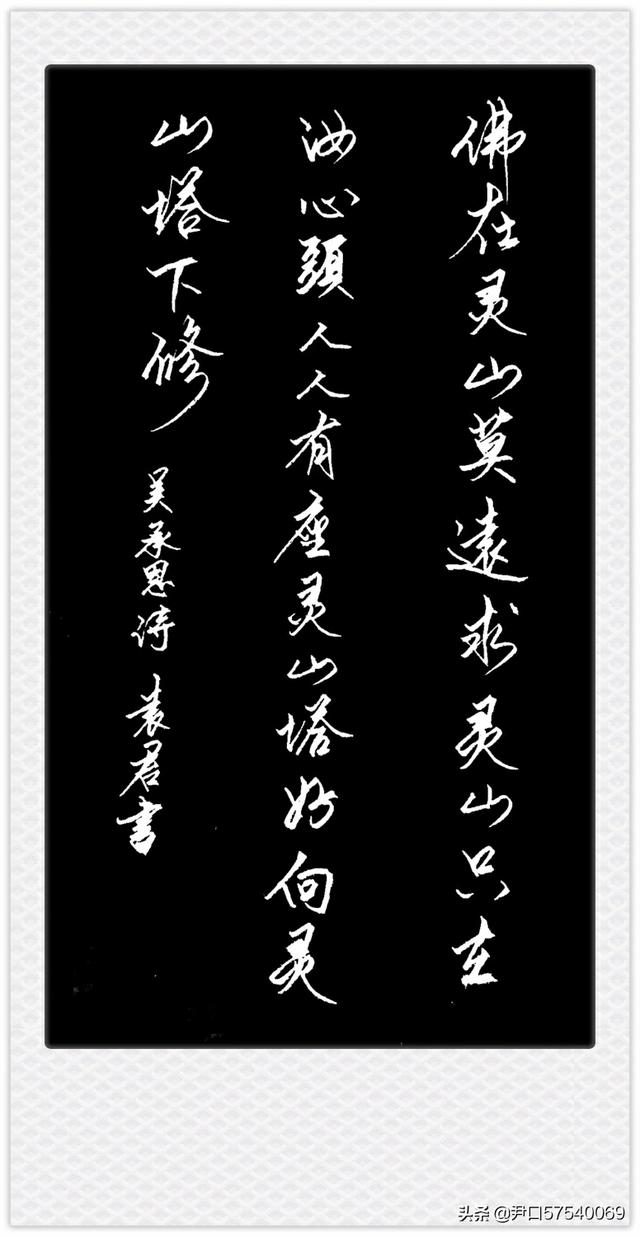 佛在灵山莫遠求灵山只在
汝心頭人人有座灵山塔好向灵
山塔下修
吴承恩诗 袁君書
头条 @尹口57540069